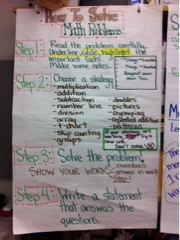 How To Solve
Math Problems
Step 1: Read the problem carefully.
Underline, circle, highlight the
important facts.
Make some notes.
Step 2: Choose a strategy
-multiplication
-addition
-subtraction
-number line
-division
-array
-t-chart
-skip counting
-groups
-doubles
-pictures
-repeated addition
-patterns
Step 3: Solve the problem,
SHOW YOUR WORK
-numbers
Step 4: Write a statement
that answers the
question.